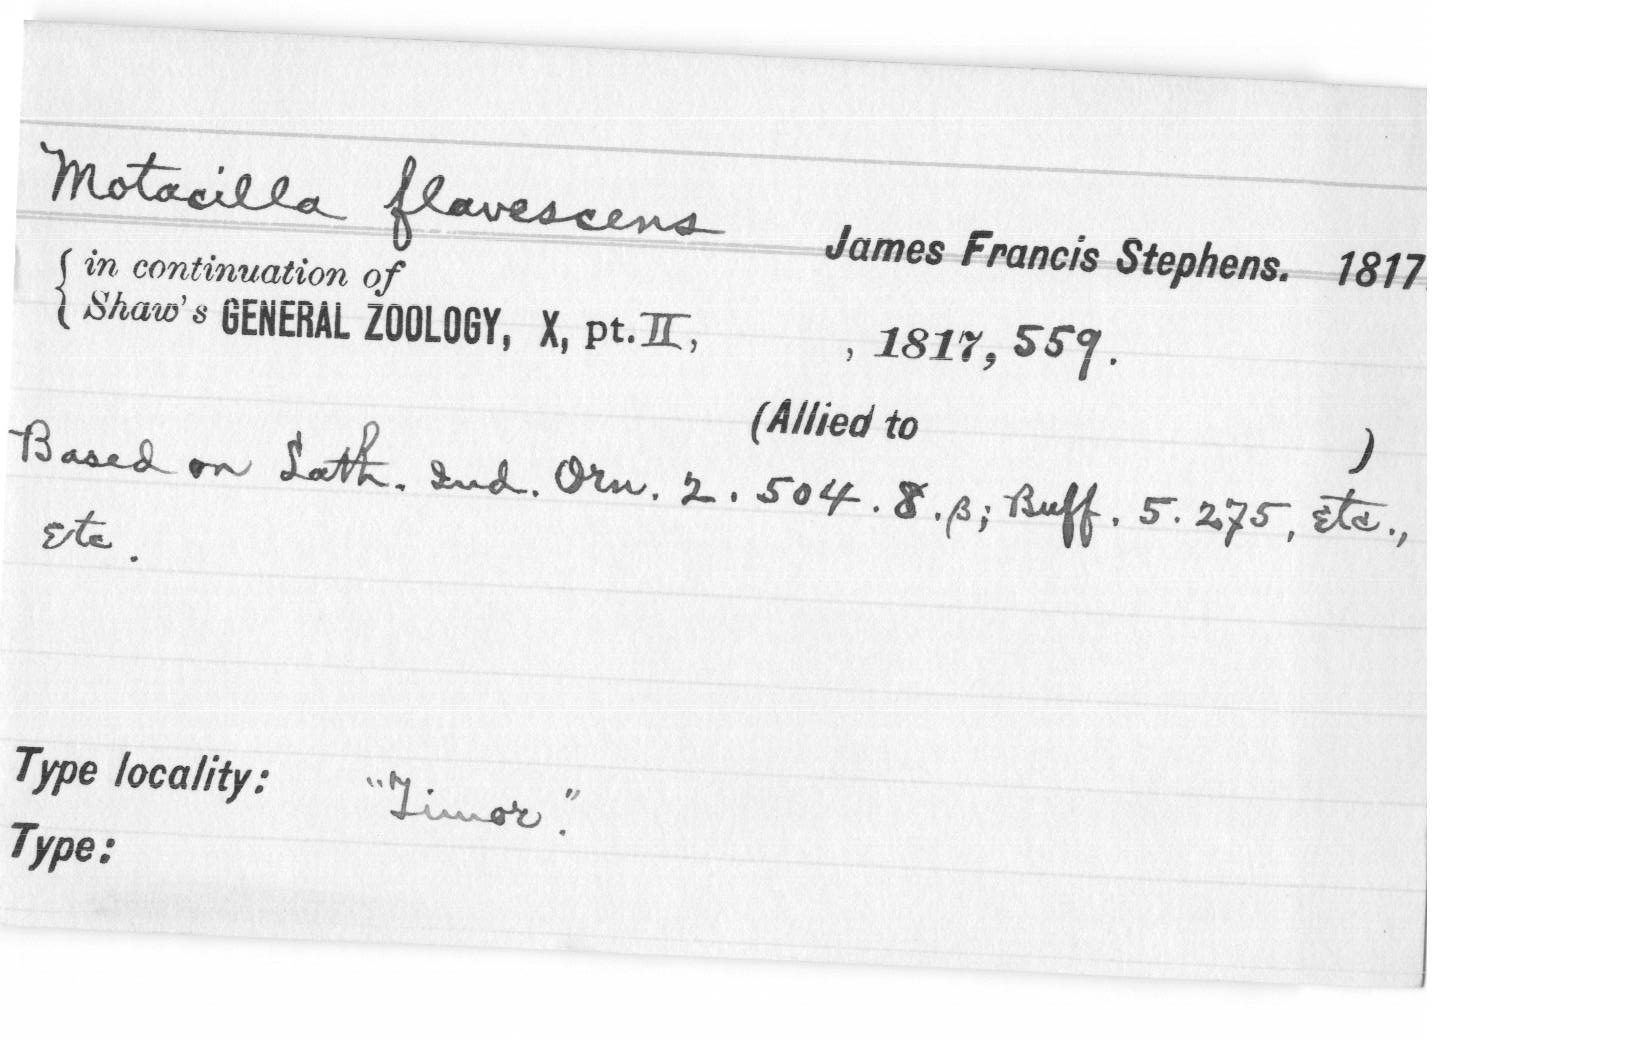 Motacilla flavescens
James Francis Stephens. 1817
{ in continuation of
Shaw's GENERAL ZOOLOGY, X, pt. II, , 1817, 559.
(Allied to )
Based on Lath. Ind. Orn. 2. 504. 8. β; Buff. 5. 275, etc.,
etc.
Type locality: "Timor".
Type: